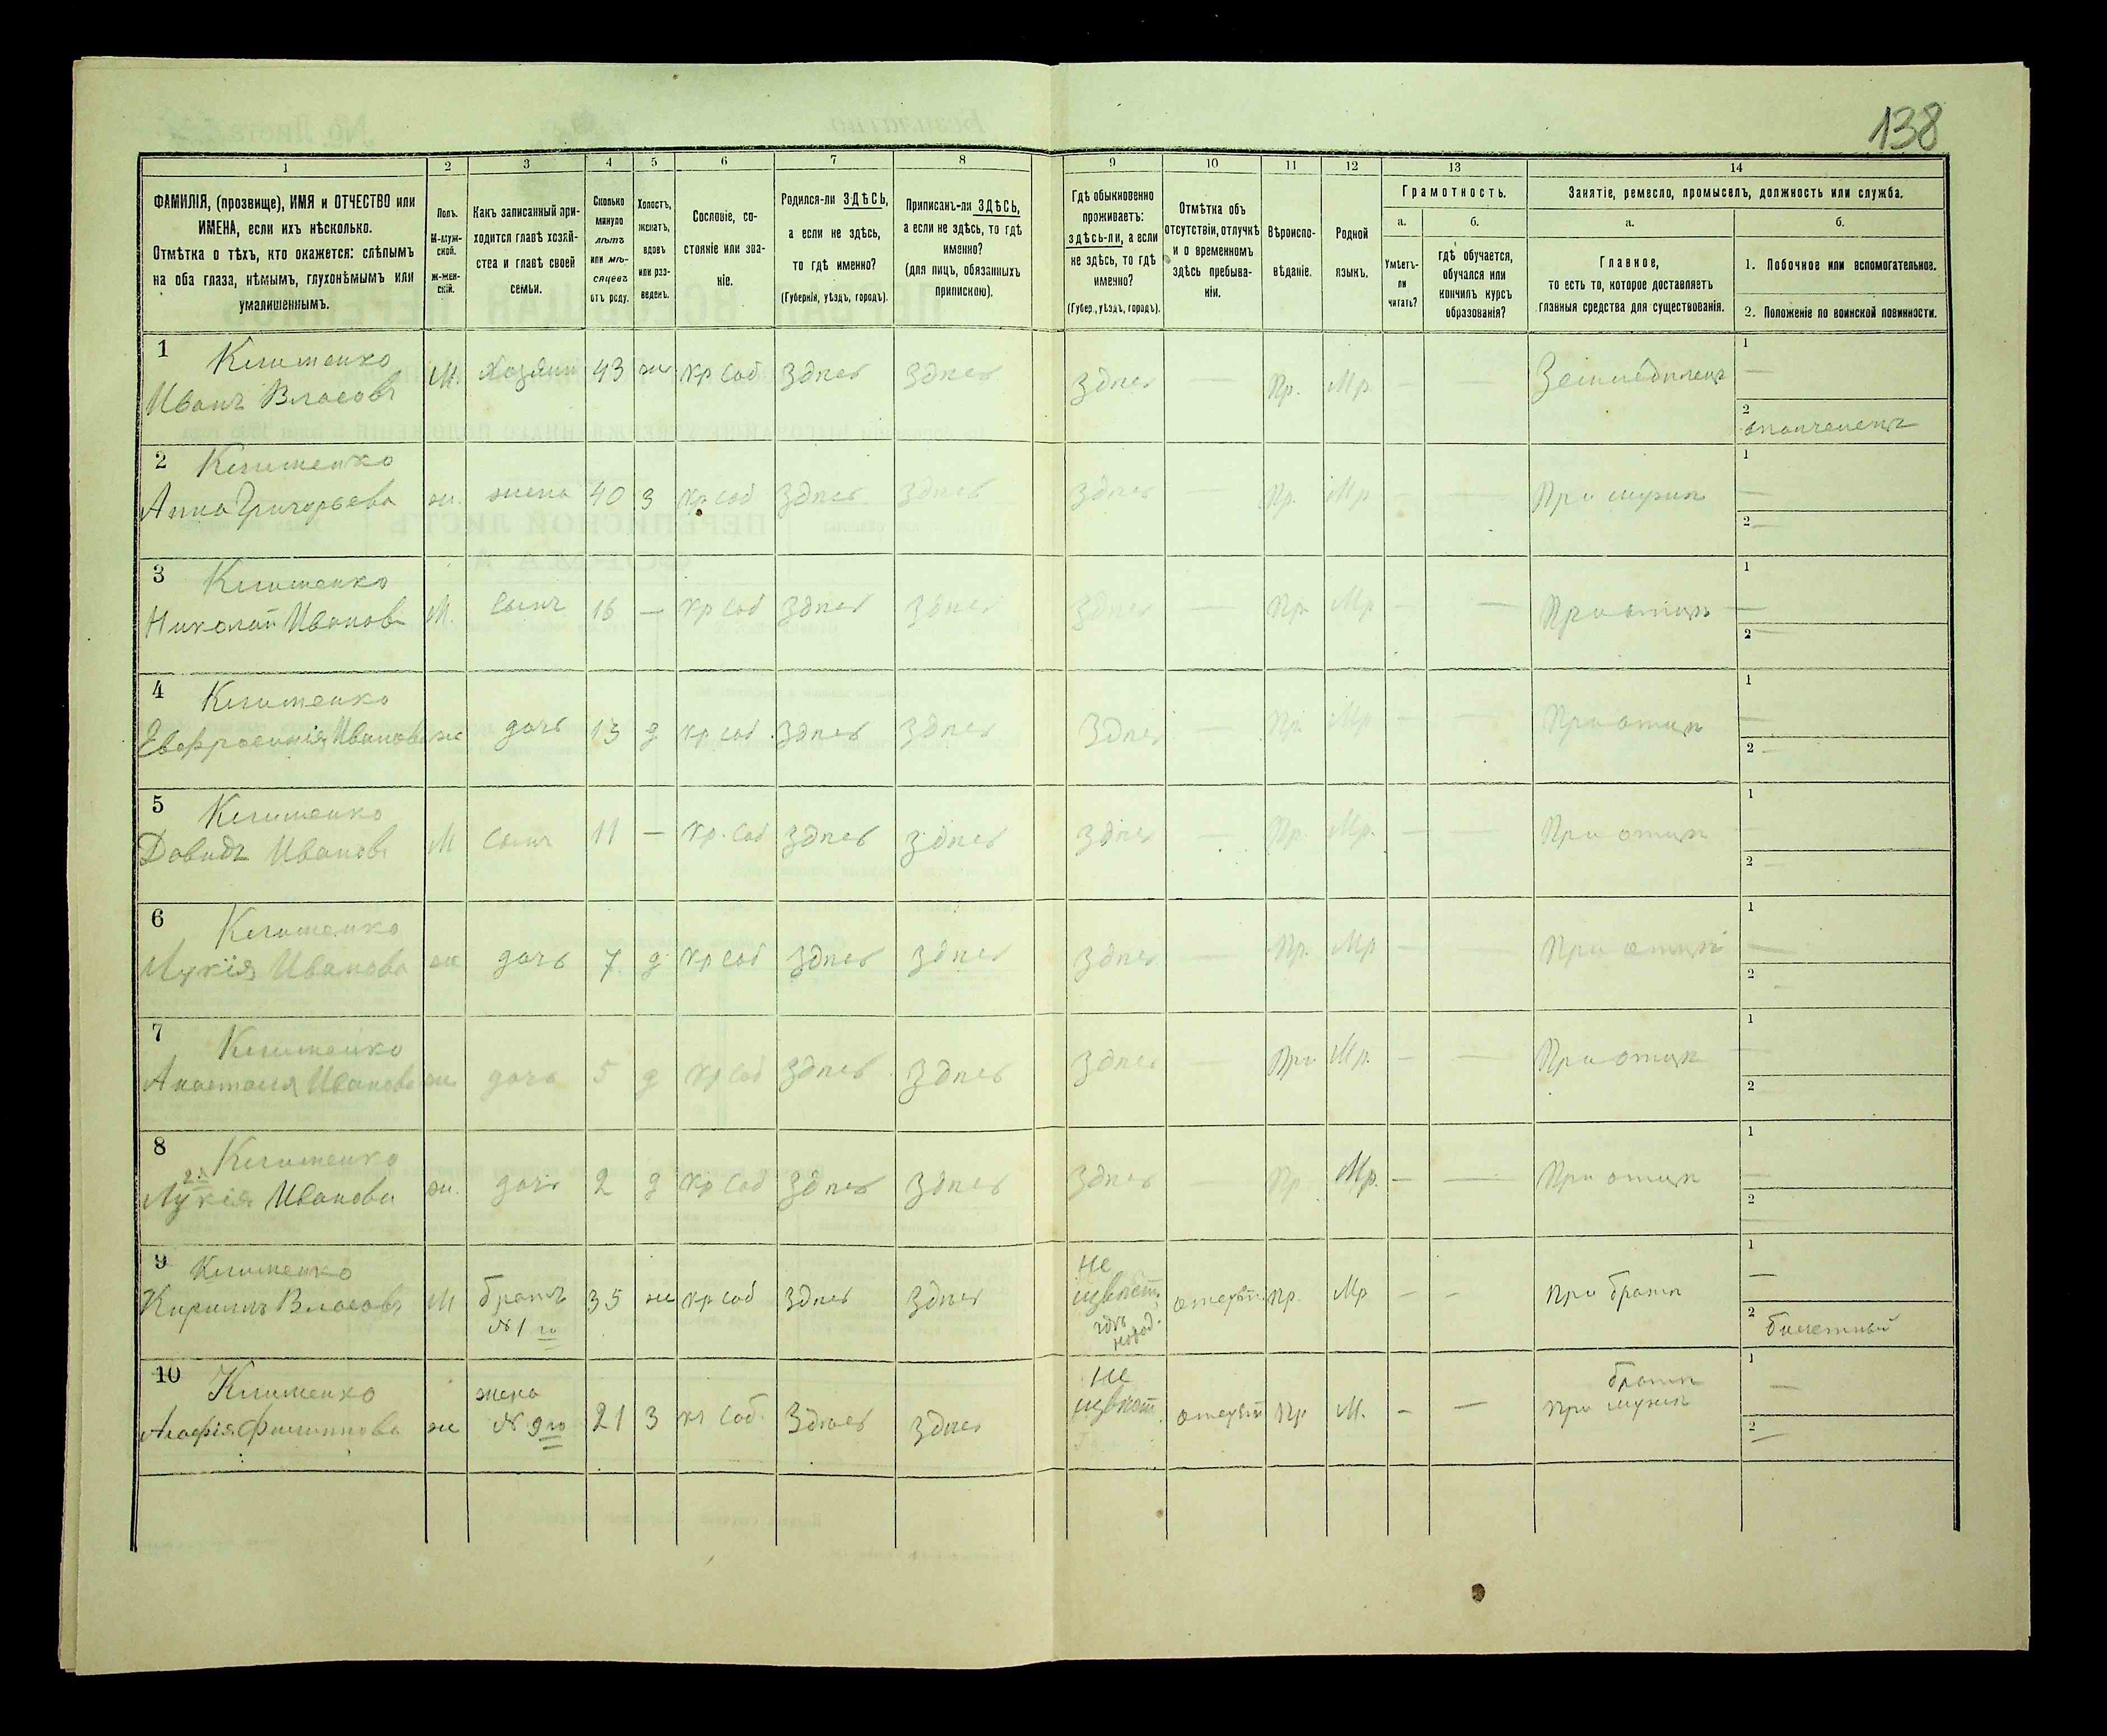 138
1 2 3 4 5 6 7 8 9 10 11 12 13 14
ФАМИЛІЯ, (прозвище), ИМЯ и ОТЧЕСТВО или
ИМЕНА, если ихъ нѣсколько.
Отмѣтка о тѣхъ, кто окажется: слѣпымъ
на оба глаза, нѣмымъ, глухонѣмымъ или
умалишеннымъ.
Полъ.
М-муж-
ской.
Ж-жен-
скій.
Какъ записанный при-
ходится главѣ хозяй-
ства и главѣ своей
семьи.
Сколько
минуло
лѣтъ
или мѣ-
сяцевъ
отъ роду.
Холостъ,
женатъ,
вдовъ
или раз-
веденъ.
Сословіе, со-
стояніе или зва-
ніе.
Родился-ли ЗДѢСЬ,
а если не здѣсь,
то гдѣ именно?
(Губернія, уѣздъ, городъ).
Приписанъ-ли ЗДѢСЬ,
а если не здѣсь, то гдѣ
именно?
(для лицъ, обязанныхъ
припискою).
Гдѣ обыкновенно
проживаетъ:
здѣсь-ли, а если
не здѣсь, то гдѣ
именно?
(Губер., уѣздъ, городъ).
Отмѣтка объ
отсутствіи, отлучкѣ
и о временномъ
здѣсь пребыва-
ніи.
Вѣроиспо-
вѣданіе.
Родной
языкъ.
Грамотность.
а.
Умѣетъ-
ли
читать?
б.
гдѣ обучается,
обучался или
кончилъ курсъ
образованія?
Занятіе, ремесло, промыселъ, должность или служба.
а.
Главное,
то есть то, которое доставляетъ
главныя средства для существованія.
б.
1. Побочное или вспомогательное.
2. Положеніе по воинской повинности.
1 Клименко
Иванъ Власовъ М. Хозяинъ 43 ж кр соб Здѣсь Здѣсь Здѣсь — Пр. Мр — — Земледѣлецъ 1 —
2 ополченецъ
2 Клименко
Анна Григорьева ж. жена 40 з кр соб Здѣсь Здѣсь Здѣсь — Пр. Мр - — При мужѣ 1 —
2 —
3 Клименко
Николай Иванов М. Сынъ 16 — кр соб Здѣсь Здѣсь Здѣсь — Пр. Мр - — При отцѣ 1 —
2 —
4 Клименко
Евфросинія Иванова ж дочь 13 д кр соб Здѣсь Здѣсь Здѣсь — Пр. Мр — — При отцѣ 1 —
2 —
5 Клименко
Давидъ Иванов М Сынъ 11 — кр. соб Здѣсь Здѣсь Здѣсь — Пр. Мр. — — При отцѣ 1 —
2 —
6 Клименко
Лукія Иванова ж дочь 7 д кр соб Здѣсь Здѣсь Здѣсь — Пр. Мр — — При отцѣ 1 —
2 -
7 Клименко
Анастасія Иванова ж дочь 5 д кр соб Здѣсь Здѣсь Здѣсь — Пр Мр. - — При отцѣ 1 —
2
8 Клименко
2я
Лукія Иванова ж. дочь 2 д кр соб Здѣсь Здѣсь Здѣсь — Пр Мр. — — При отцѣ 1 —
2
9 Клименко
Кирилъ Власовъ М братъ 35 ж кр соб Здѣсь Здѣсь Не Пр. Мр — - при братѣ 1 —
№ 1 го
2 билетный
10 Клименко
Агафія Филиппова ж жена 21 З кр соб. Здѣсь Здѣсь Не Пр М. - — при мужѣ братѣ 1 —
№ 9 го
2 —